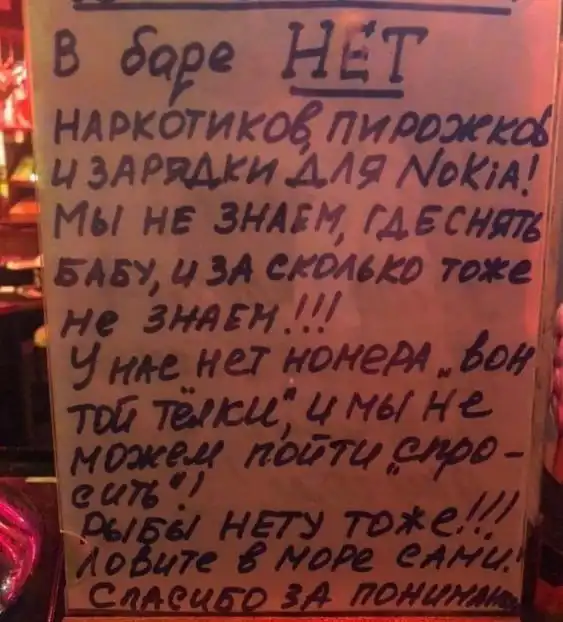 В баре НЕТ
НАРКОТИКОВ, ПИРОЖКОВ
И ЗАРЯДКИ ДЛЯ NOKIA!
МЫ НЕ ЗНАЕМ, ГДЕ СНЯТЬ
БАБУ, И ЗА СКОЛЬКО ТОЖЕ
НЕ ЗНАЕМ!!!
У НАС НЕТ НОМЕРА „ВОН
ТОЙ ТЁЛКИ", И МЫ НЕ
МОЖЕМ ПОЙТИ „СПРО-
СИТЬ"!
РЫБЫ НЕТУ ТОЖЕ!!!
ЛОВИТЕ В МОРЕ САМИ!
СПАСИБО ЗА ПОНИМАНИЕ